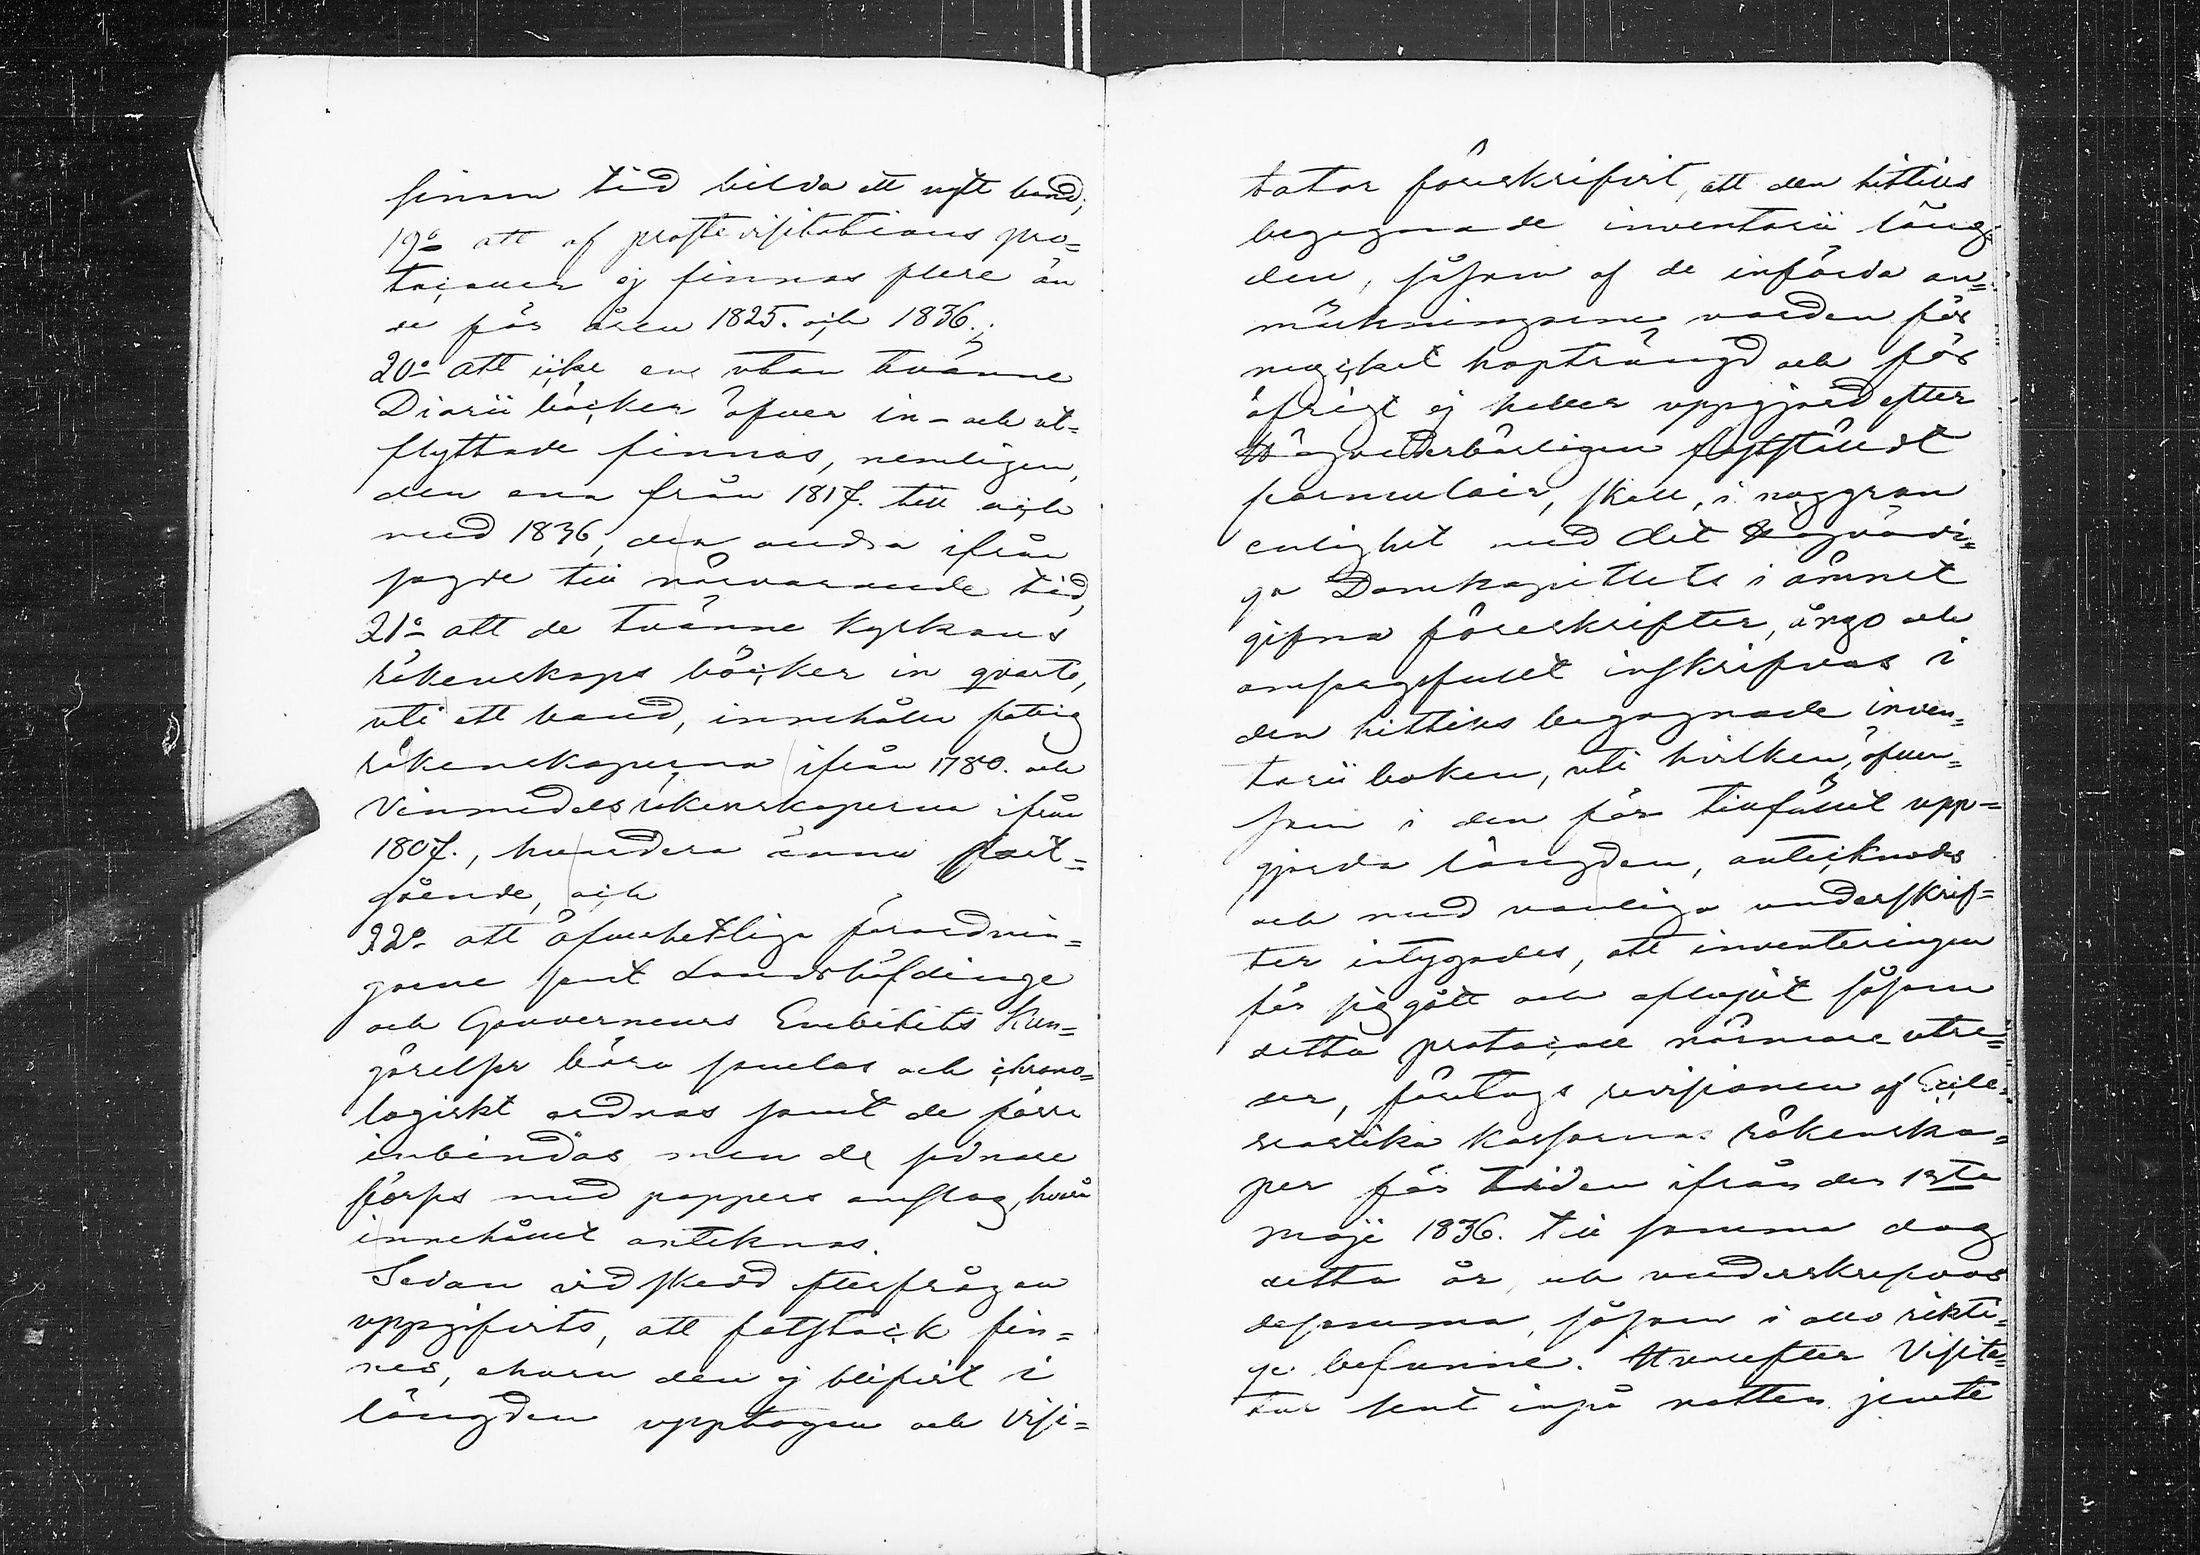 sinom tid bilda ett nytt band;
19o att af proste visitations pro=
tocoller ej finnas flere än
de för åren 1825. och 1836.;
20o att icke en utan tvänne
Diarii böcker öfver in- och ut=
flyttade finnas, nemligen,
den ena från 1817. till och
med 1836, den andra ifrån
sagde till närvarande tid,
21o att de tvänne Kyrkans
räkenskaps böcker in qvarto,
uti ett band, innehålla fattig
räkenskaperna ifrån 1780. och
Vinmedels räkenskaperna ifrån
1807., hvardera ännu fort=
gående, och
22o att öfverhetliga förordnin=
garne samt Landshöfdinge
och Gouverneurs Embetets Kun=
görelser böra samlas och chrono=
logiskt ordnas samt de förre
inbindas men de sednare
förses med pappers omslag, hvarå
innehållet anteknas.
Sedan vid skedd efterfrågan
uppgifvits, att fatstock fin=
nes, ehuru den ej blifvit i
längden upptagen och Visi=
tator föreskrifvit, att den hittills
begagnade inventarii läng=
den, såsom af de införda an=
märkningarne vorden för
mycket hopträngd och för
öfrigt ej heller uppgjord efter
Högvederbörligen fastställdt
formulair, skall, i noggran
enlighet med det Högvördi=
ga Domkapitlets i ämnet
gifna föreskrifter, ånyo och
omsorgsfullt inskrifvas i
den hittills begagnade inven=
tarii boken, uti hvilken, äfven=
som i den för tillfället upp=
gjorda längden, antecknades
och med vanliga underskrif=
ter intygades, att inventeringen
för sig gått och aflupit såsom
detta protocoll närmare utre=
der, företogs revisionen af Eccle=
siastika Kassornas räkenska=
per för tiden ifrån den 1sta
Maji 1836. till samma dag
detta år, och underskrefvos
desamma, såsom i allo rikti=
ga befunne. Hvarefter Visita=
tor sent inpå natten jemte